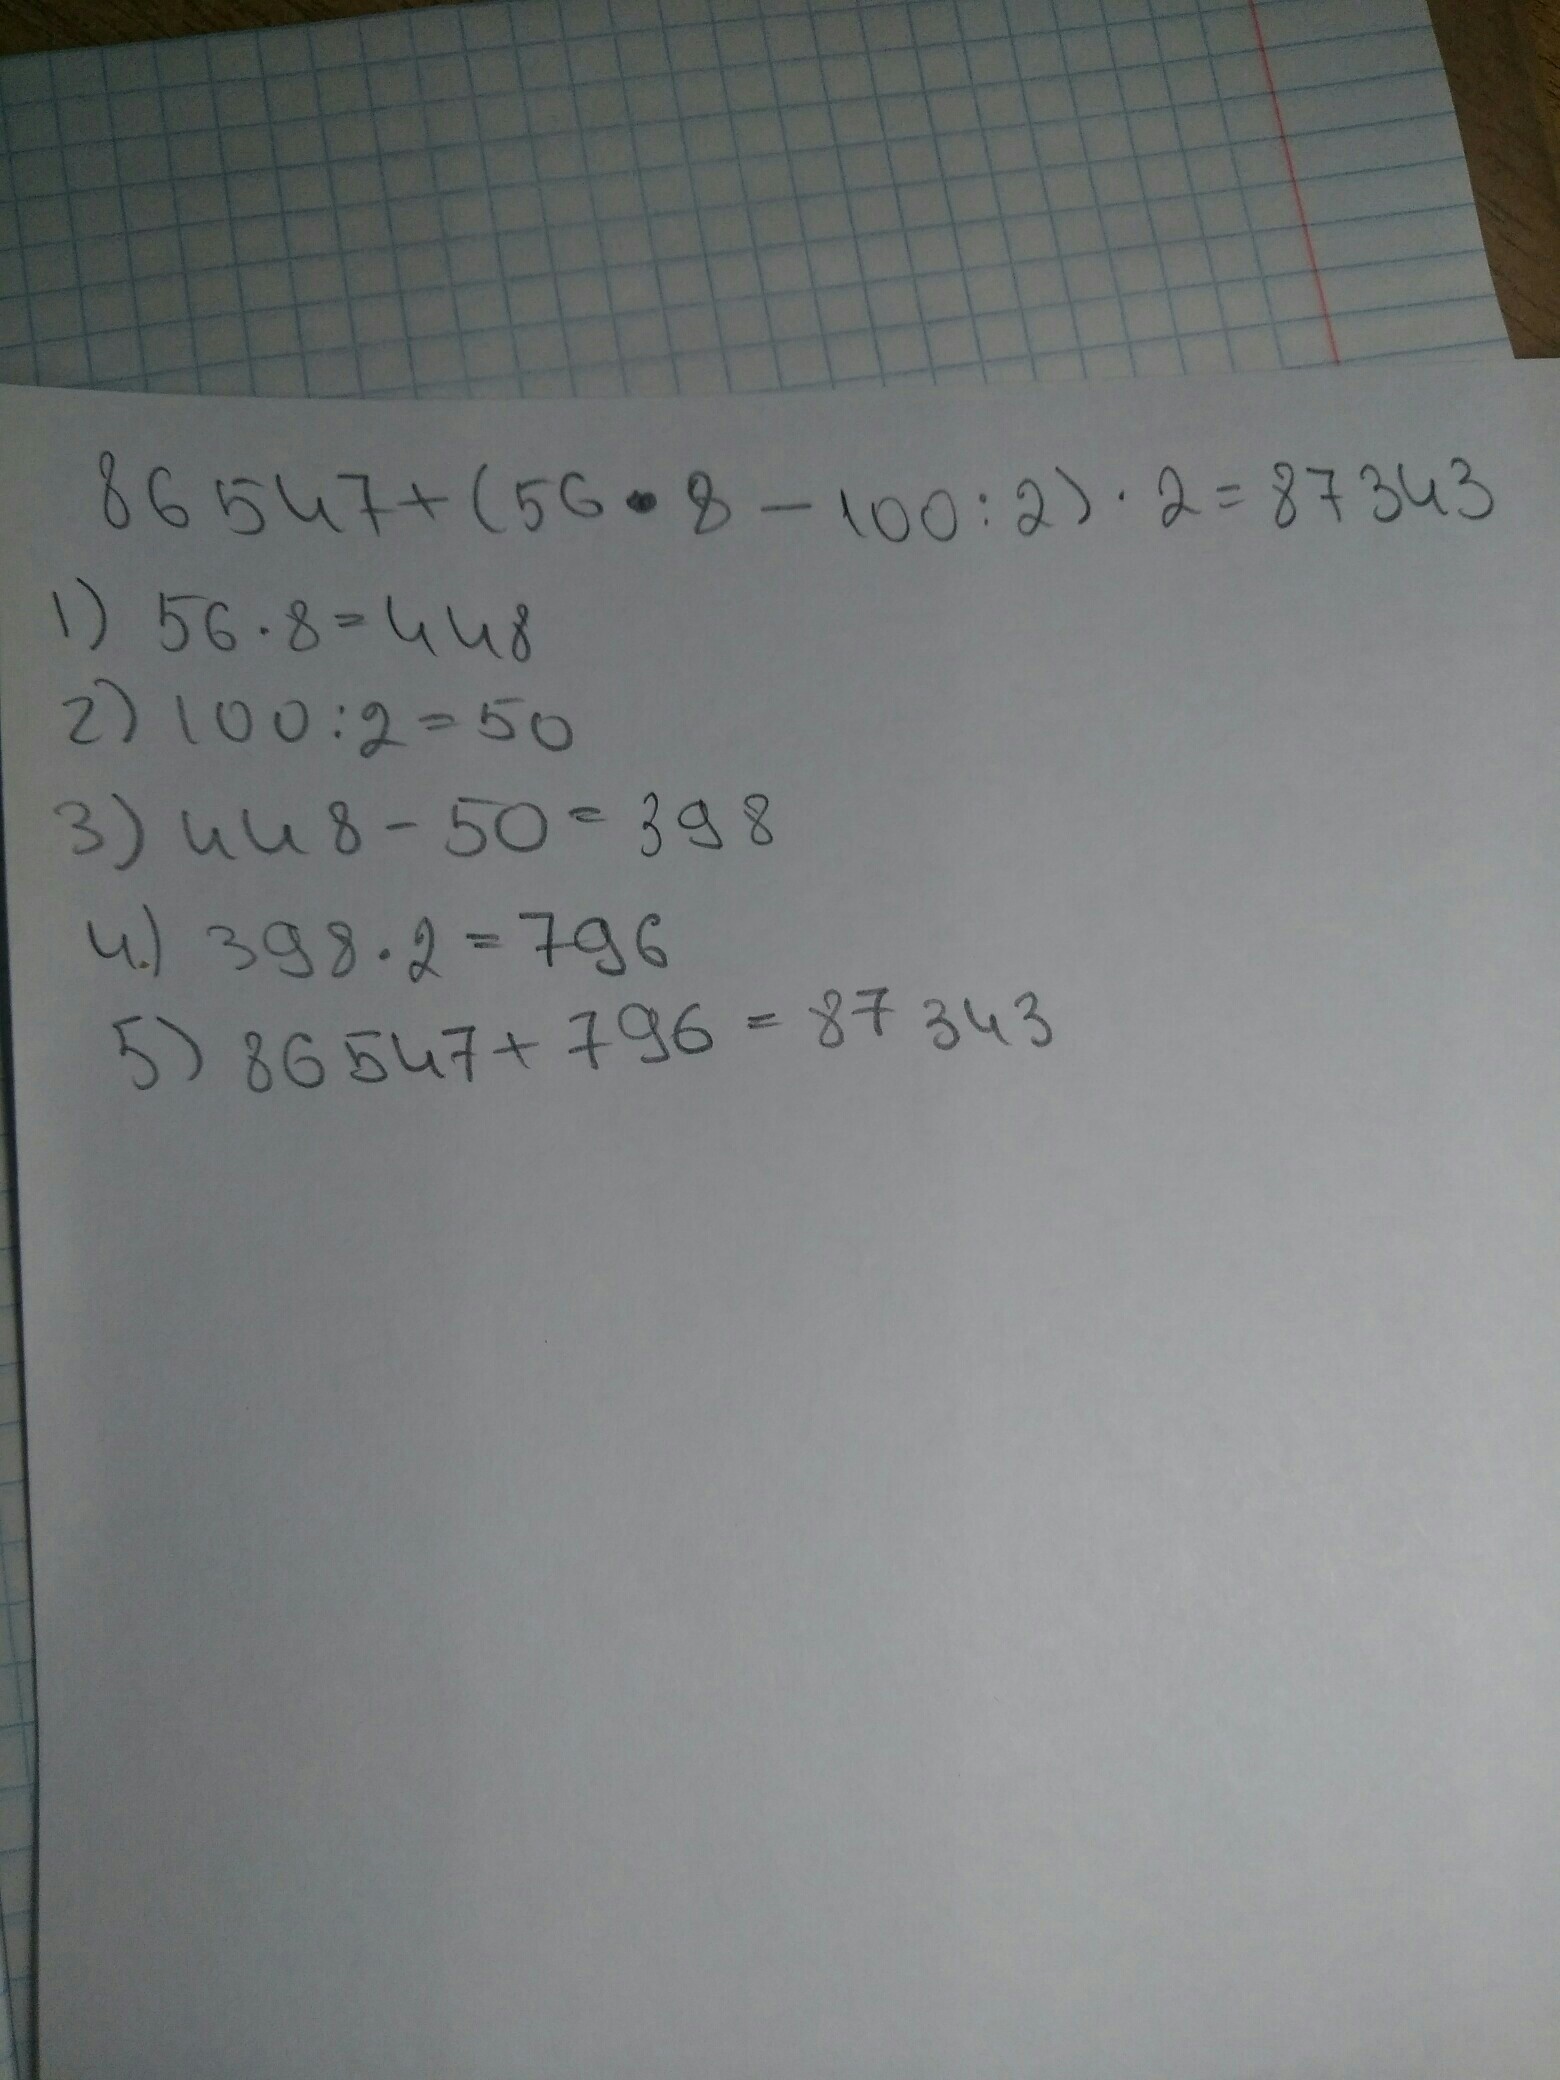 86547+(56•8-100:2)·2=87343
1) 56·8=448
2) 100:2=50
3) 448-50=398
4.) 398·2=796
5) 86547+796=87343